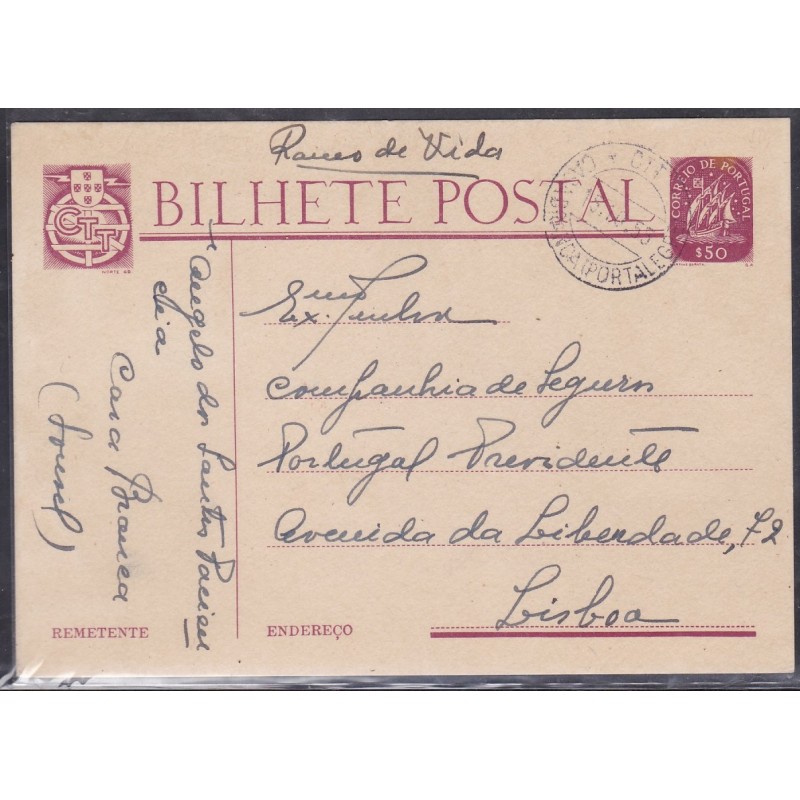 Ramo de Vida
CTT
BILHETE POSTAL
CORREIO DE PORTUGAL
$50
(PORTALEG
Exma Senhora
Companhia de Seguros
Portugal Previdente
Avenida da Liberdade, 72
Lisboa
Angelo dos Santos
Casa Branca
(Sousel)
REMETENTE
ENDEREÇO